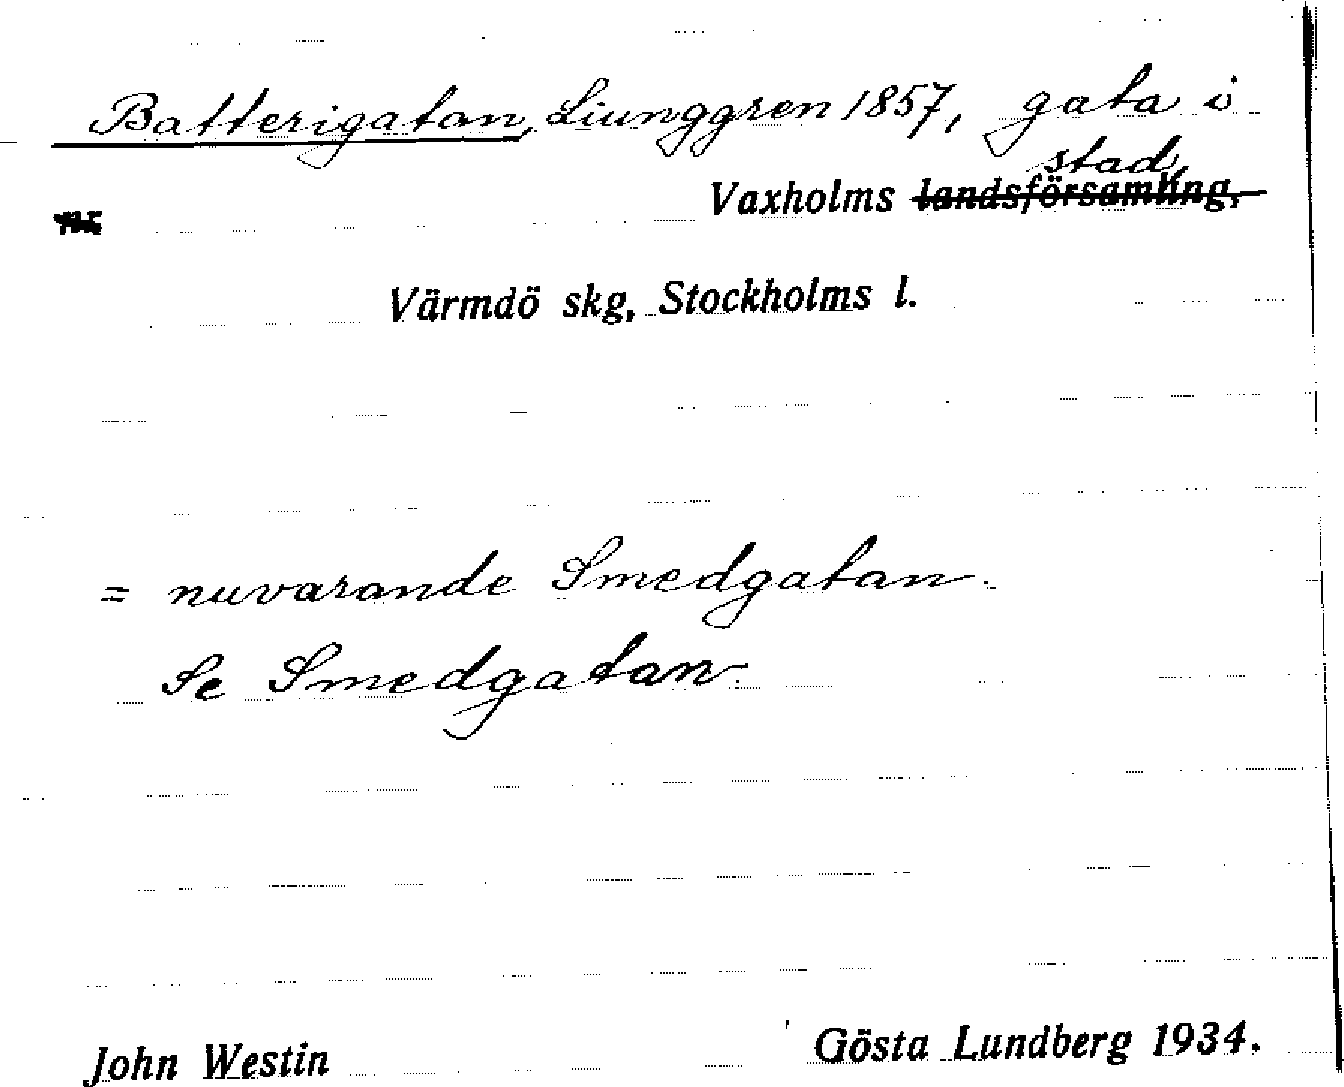 Batterigatan, Liunggren 1857, gata i
stad,
Vaxholms landsförsamling,
Värmdö skg, Stockholms l.
= nuvarande Smedgatan.
Se Smedgatan.
John Westin Gösta Lundberg 1934.